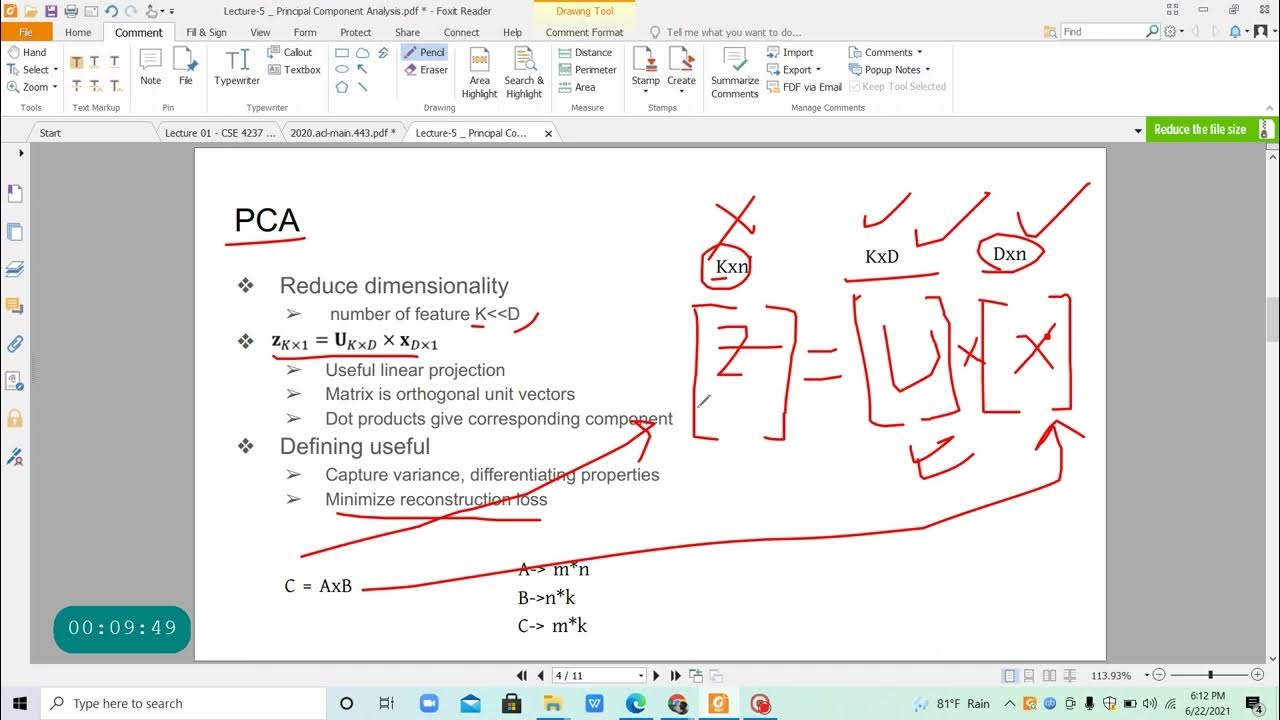 Lecture-5 _ Principal Component Analysis.pdf * - Foxit Reader
Drawing Tool
File Home Comment Fill & Sign View Form Protect Share Connect Help Comment Format Tell me what you want to do... Find
Hand
Select
Zoom
Tools
Text Markup
Note
File
Pin
Typewriter
Callout
Textbox
Typewriter
Pencil
Eraser
Drawing
Area Highlight
Search & Highlight
Distance
Perimeter
Area
Measure
Stamp
Create
Stamps
Summarize Comments
Import
Export
FDF via Email
Comments
Popup Notes
Keep Tool Selected
Manage Comments
Start Lecture 01 - CSE 4237 ... 2020.acl-main.443.pdf * Lecture-5 _ Principal Co... Reduce the file size
PCA
Kxn KxD Dxn
❖ Reduce dimensionality
➢ number of feature K<<D
❖ z_{K×1} = U_{K×D} × x_{D×1}
[Z] = [U] x [X]
➢ Useful linear projection
➢ Matrix is orthogonal unit vectors
➢ Dot products give corresponding component
❖ Defining useful
➢ Capture variance, differentiating properties
➢ Minimize reconstruction loss
C = AxB
A-> m*n
B->n*k
C-> m*k
00:09:49
4 / 11
113.93%
Type here to search
81°F Rain
6:12 PM
6/22/2021
4